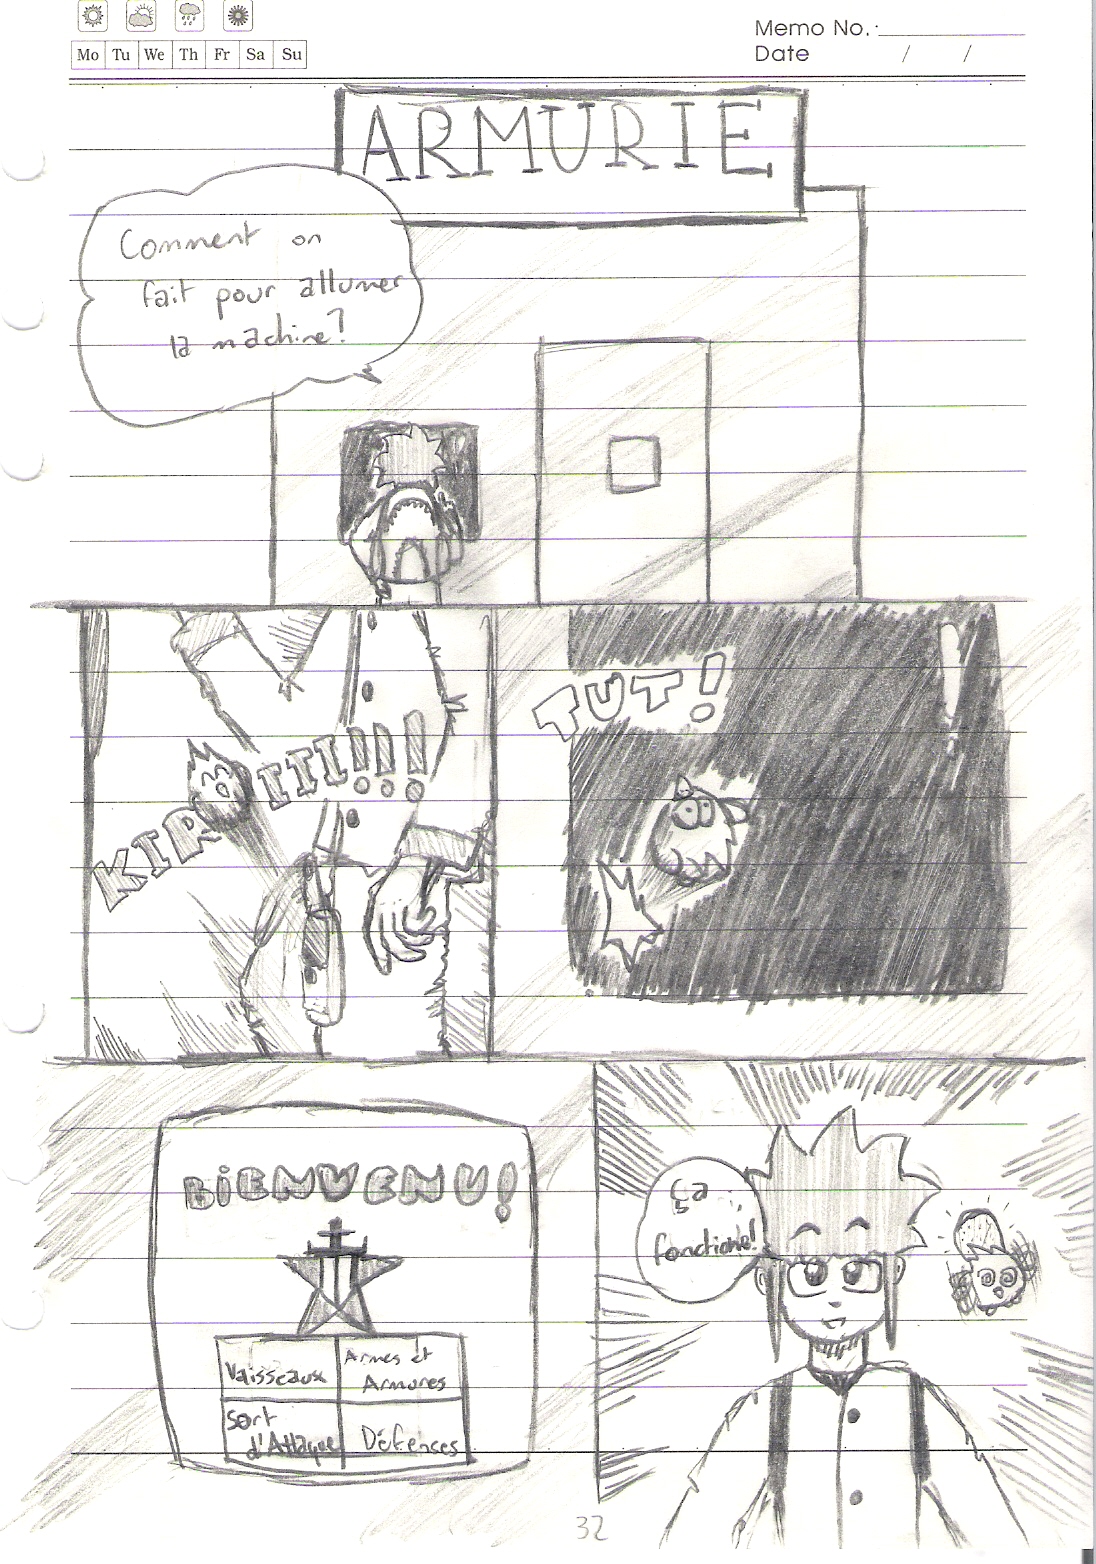 Mo Tu We Th Fr Sa Su
Memo No.
Date / /
ARMURIE
Comment on
fait pour allumer
la machine?
KIROIII!!!
TUT!
!
BiENVENU!
Vaisseaux
Armes et
Armures
Sort
d'Attaque
Défenses
ça
fonctionne!
32